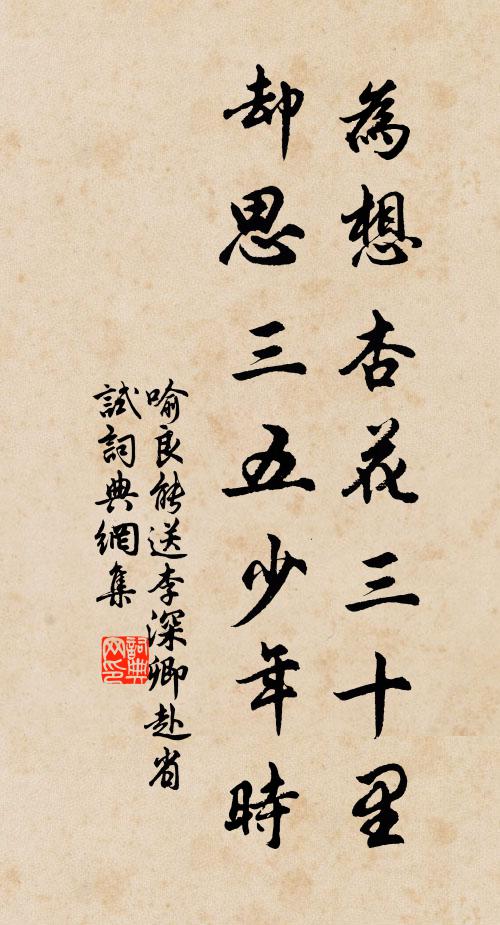 為想杏花三十里
却思三五少年時
喻良能送李深卿赴省
試詞典網集
詞典网印